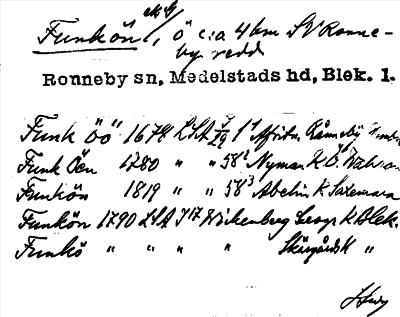 Funkön, Ö c:a 4 km SV Ronne-
by redd
Ronneby sn, Medelstads hd, Blek. l.
Funk öö 1678 LSA
Funk Öen 1780 " " 58² Nyman K Ö.
Funkön 1819 " " 58³ Abelin K Saxemara
Funkön 1790 LSA I 17 Wickenberg Geogr K Blek.
Funkö " " " " SkärgårdsK "